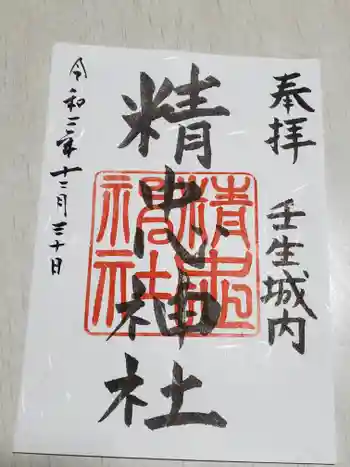 奉拝
壬生城内
精忠神社
令和三年十二月三十日